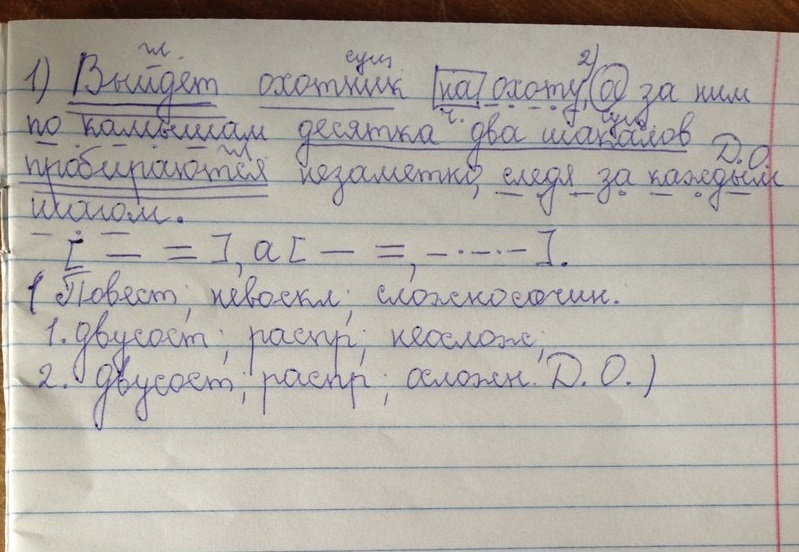 гл. сущ 2)
1) Выйдет охотник на охоту, а за ним
ч. сущ
по камышам десятка два шакалов
гл Д.О.
пробираются незаметно, следя за каждым
шагом.
[ — = ], а [ — =, –·–·– ].
( Повест; невоскл; сложносочин.
1. двусост; распр; неослож;
2. двусост; распр; осложн. Д.О. )